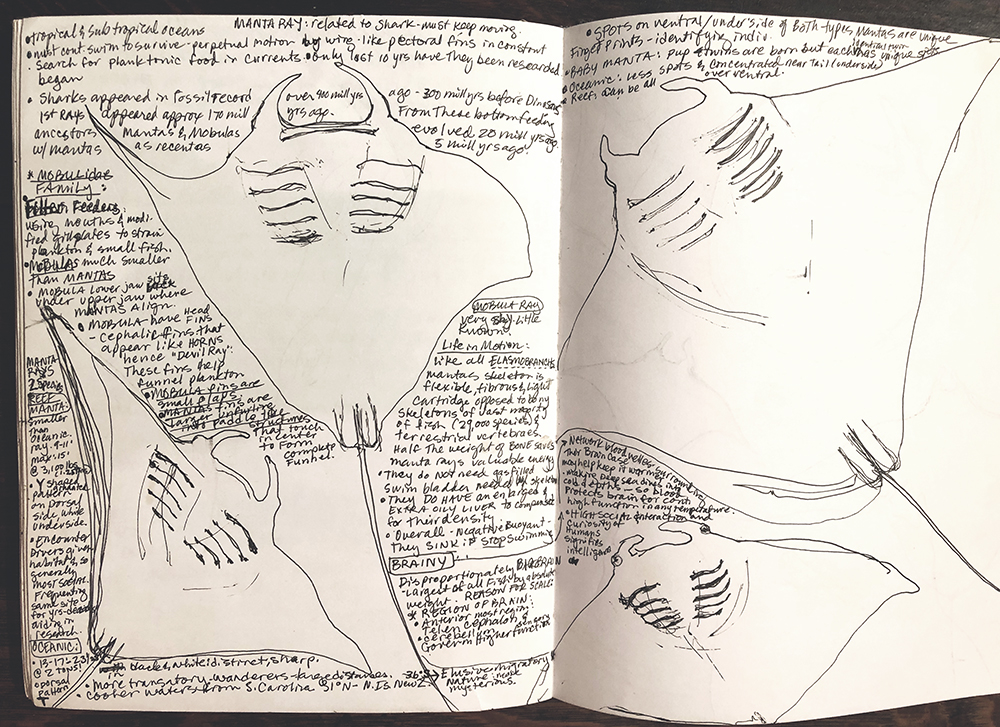 MANTA RAY: related to shark - must keep moving.
• tropical & sub tropical oceans
• must cont. swim to survive - perpetual motion by wing-like pectoral fins in constant
search for planktonic food in currents. • only last 10 yrs have they been researched
began
• Sharks appeared in fossil record over 400 mill yrs ago - 300 mill yrs before Dinos
1st Rays appeared approx 170 mill yrs ago. From these bottom feeding
ancestors Mantas & Mobulas evolved 20 mill yrs ago.
w/ mantas as recent as 5 mill yrs ago.
* MOBULIDAE
FAMILY:
Filter Feeders:
using mouths & modi-
fied gill plates to strain
plankton & small fish.
• MOBULAS much smaller
than MANTAS
• MOBULA lower jaw sits
under upper jaw where
MANTAS Align.
• MOBULA have Head FINS
- cephalic fins that
appear like HORNS
hence "Devil Ray".
These fins help
funnel plankton
• MOBULA fins are
small flaps.
• MANTAS fins are
larger
into Paddle like structures
that touch
in center
to form
complete
funnel.
MANTA
RAYS
2 species
REEF
MANTA:
smaller
than
oceanic
ray. 9-11'
max: 15'
@ 3,100 lbs
• Y shaped
pattern on dorsal
side while
underside.
• Encounter
Drivers given
habitat & so
generally
most social.
Frequenting
same site
for yrs-decades
aiding in
research.
OCEANIC:
• 13-17-23'
@ 2 TONS!
• Dorsal
pattern
in black & white: distinct, sharp.
• More transatory-wanderers - huge distances.
• cooler waters from S. Carolina @ 31°N - N. Is New Z. 36°S
MOBULA RAY
very little
known!
Life in Motion:
Like all ELASMOBRANCHS
mantas skeleton is
flexible, fibrous & light
cartridge opposed to bony
skeletons of vast majority
of fish (29,000 species) &
terrestrial vertebraes.
Half the weight of BONE saves
manta rays valuable energy
• They do NOT need gas filled
swim bladder needed by skeleton
• They DO HAVE an enlarged &
EXTRA OILY LIVER to compensate
for their density
• Overall - Negative Buoyant -
They SINK if STOP swimming
BRAINY
Disproportionately BIG BRAIN
- Largest of all Fish by absolute
weight. REASON FOR
* REGION OF BRAIN:
• Anterior most region
Telen cephalon &
• cerebellum sensory
Govern Higher function
Elusive migratory
Nature:
mysterious.
• SPOTS on ventral/under side of Both types Mantas are unique
Finger Prints - identifying indiv.
• BABY MANTA: pup & twins are born but each has unique spots
identical twin
• Oceanic: less SPOTS & concentrated near Tail (underside)
• Reef: can be all over ventral.
• Network blood vessels
their Brain case
may help keep it warm surrounding
making deep sea dives into
cold depths - so blood
Protects brain for cont.
high function in any temperature.
• HIGH social interaction and
curiosity of
Humans
signifies
intelligence